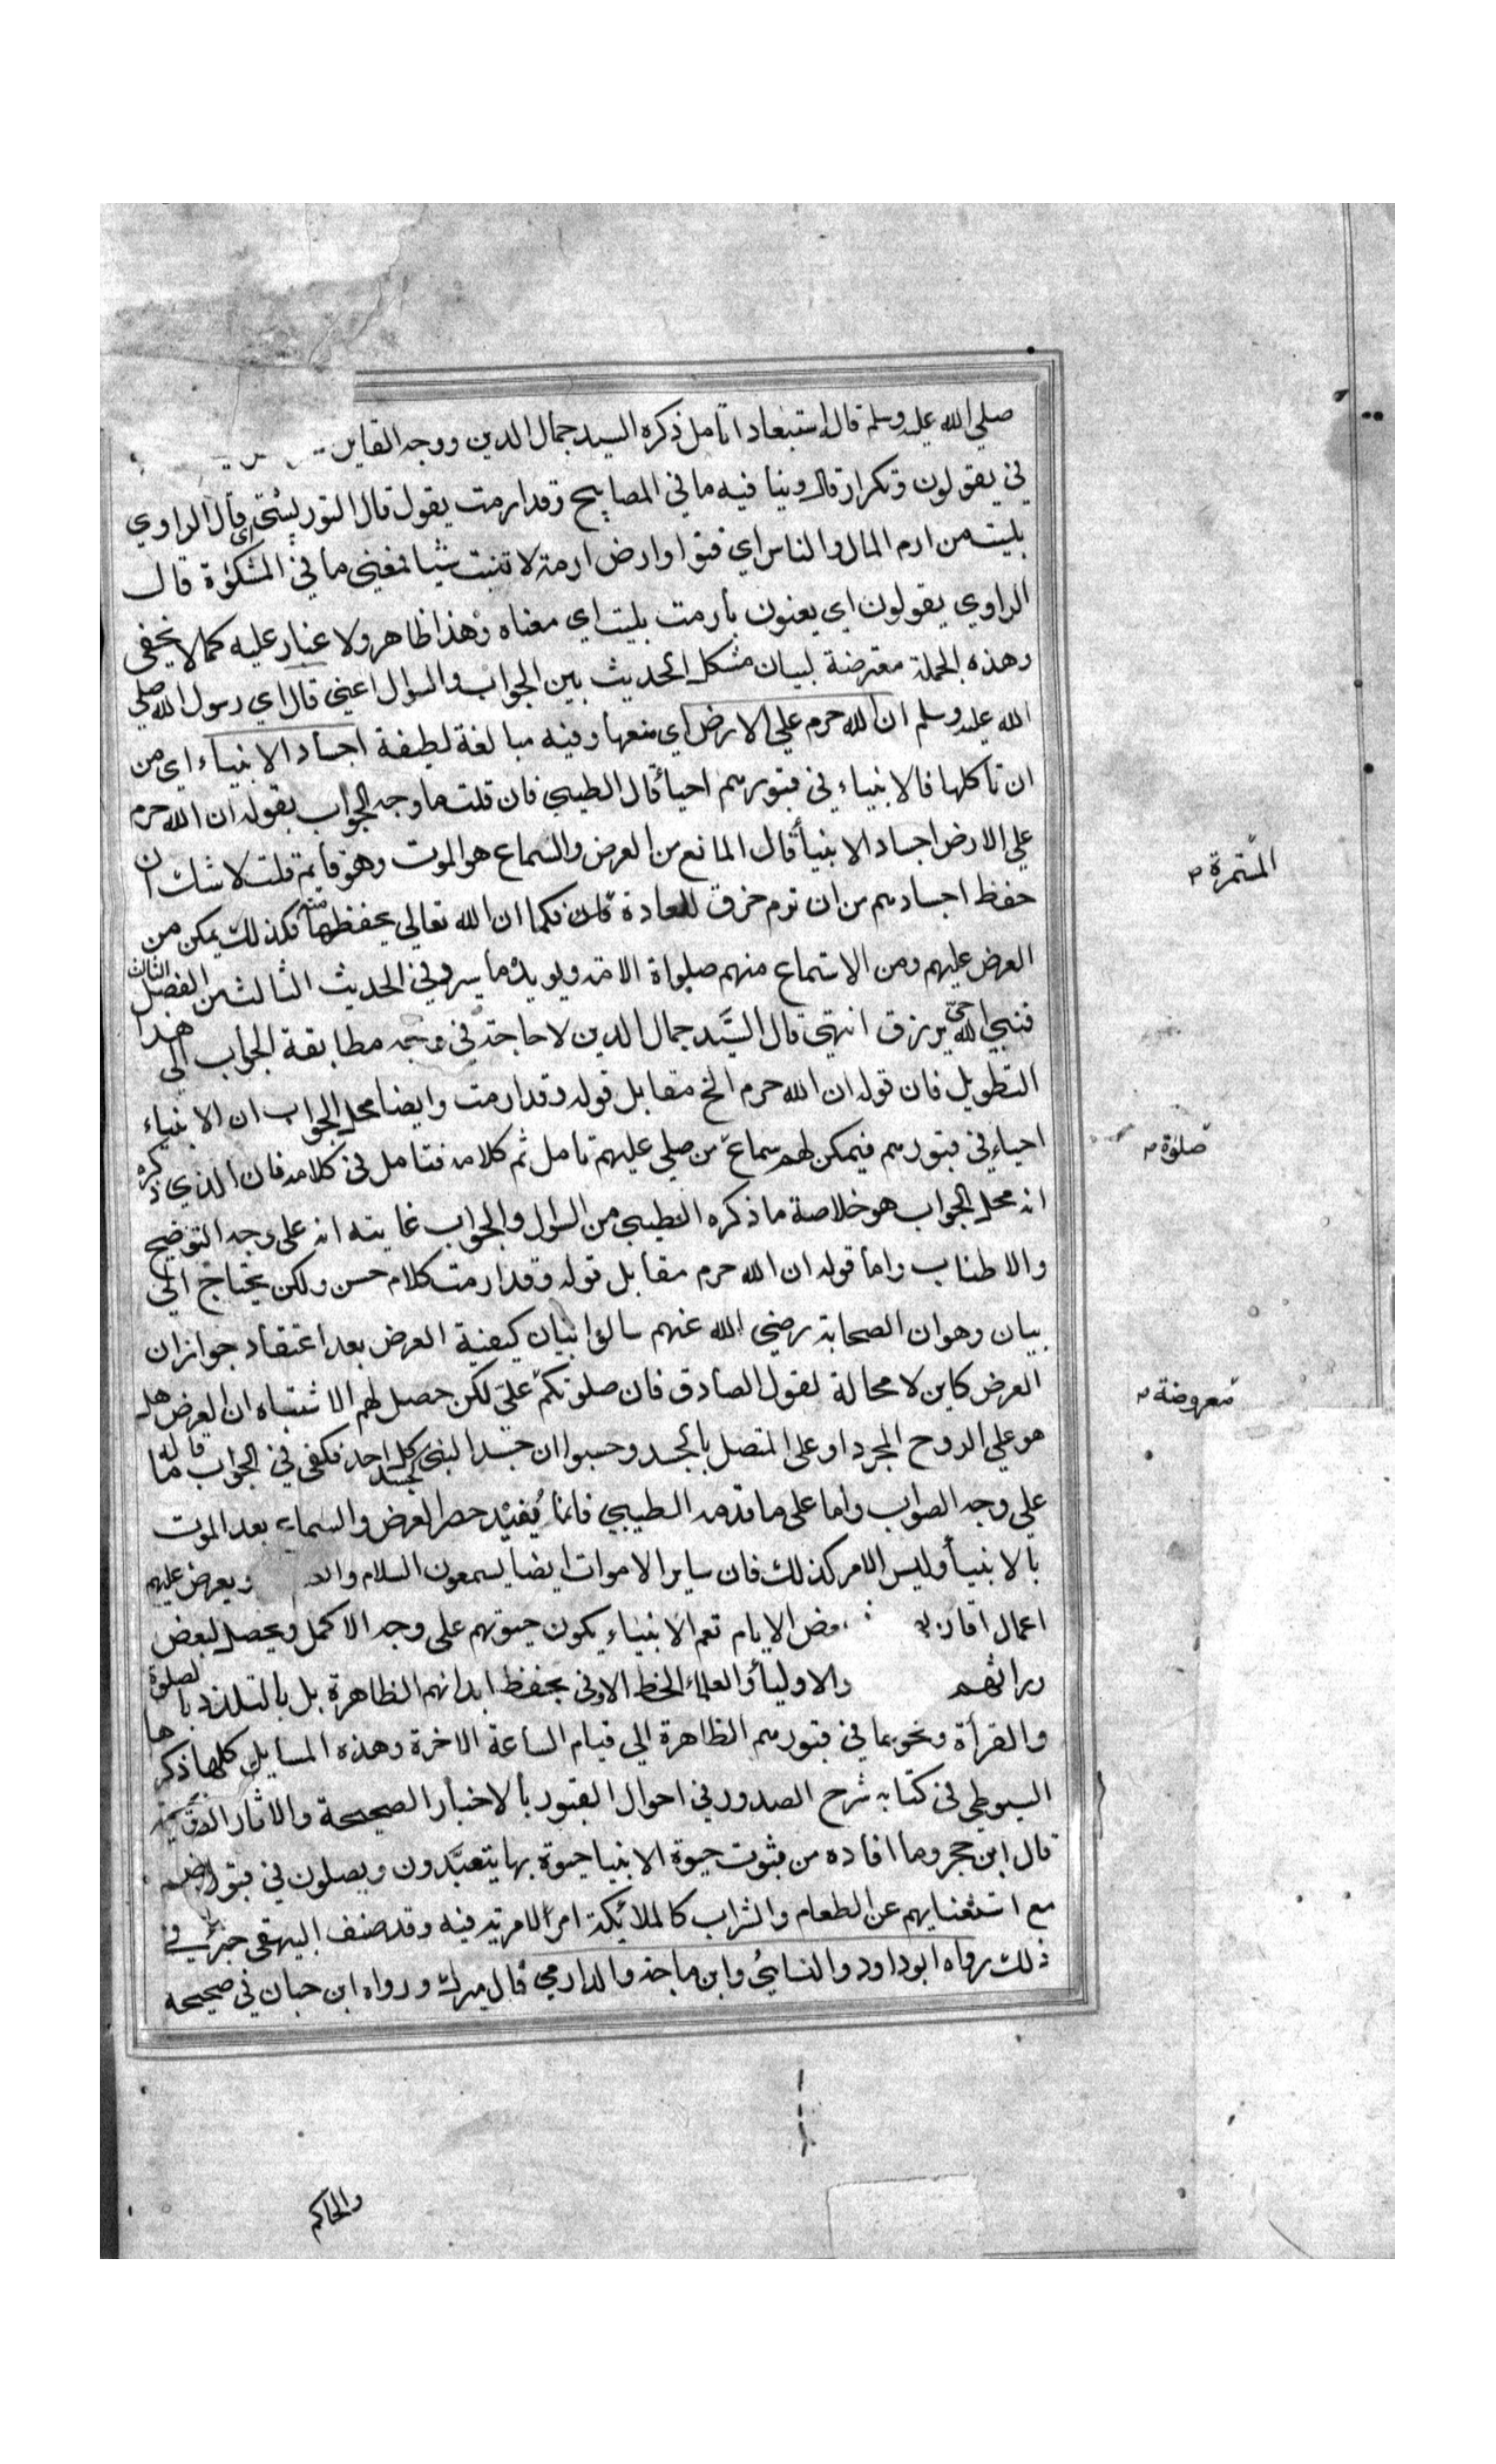 صلي الله عليه وسلم قال استبعادا تامل ذكره السيد جمال الدين ووجه القاين
في يقولون وتكرار قال وينا فيه ما في المصابيح وقد ارمت يقول قال التوربشتي اي قال الراوي
بليت من ارم المال والناس اي فنوا وارض ارمة لا تنبت شيا فمعني ما في المشكوة قال
الراوي يقولون اي يعنون بارمت بليت اي معناه وهذا ظاهر ولا غبار عليه كما لا يخفى
وهذه الجملة معترضة لبيان مشكل الحديث بين الجواب والسوال اعني قال اي رسول الله صلي
الله عليه وسلم ان الله حرم علي الارض اي منعها وفيه مبالغة لطيفة اجساد الانبياء اي من
ان تاكلها فالانبياء في قبورهم احياء قال الطيبي فان قلت ما وجه الجواب بقوله ان الله حرم
علي الارض اجساد الانبياء قال المانع من العرض والسماع هو الموت وهو قايم قلت لا شك ان
حفظ اجسادهم من ان ترم خرق للعادة فكما ان الله تعالي يحفظها منه فكذلك يمكن من
العرض عليهم ومن الاستماع منهم صلواة الامة ويويده ما يسرد في الحديث الثالث من الفصل الثالث
فنبي الله حي يرزق انتهي قال السيد جمال الدين لا حاجة في وجه مطابقة الجواب الي هذا
التطويل فان قوله ان الله حرم الخ مقابل قوله وقد ارمت وايضا محل الجواب ان الانبياء
احياء في قبورهم فيمكن لهم سماع من صلي عليهم تامل ثم كلامه فتامل في كلامه فان الذي ذكره
انه محل الجواب هو خلاصة ما ذكره الطيبي من السوال والجواب غايته انه علي وجه التوضيح
والاطناب واما قوله ان الله حرم مقابل قوله وقد ارمت كلام حسن ولكن يحتاج الي
بيان وهو ان الصحابة رضي الله عنهم سالوا بيان كيفية العرض بعد اعتقاد جواز ان
العرض كاين لا محالة لقول الصادق فان صلوتكم علي لكن حصل لهم الاشتباه ان العرض هل
هو علي الروح المجرد او على المتصل بالجسد وحسبوا ان جسد النبي كجسد كل احد فكفى في الجواب ما قاله
علي وجه الصواب واما على ما قدمه الطيبي فانما يفيد حصر العرض والسماع بعد الموت
بالانبياء وليس الامر كذلك فان ساير الاموات ايضا يسمعون السلام ويعرض عليهم
اعمال الايام نعم الانبياء يكون حيوتهم على وجه الاكمل ويحصل لبعض
وراثهم والاولياء والعلماء الحظ الاوفى بحفظ ابدانهم الظاهرة بل بالتلذذ بالصلوة
والقرأة ونحوهما في قبورهم الظاهرة الي قيام الساعة الاخرة وهذه المسايل كلها ذكرها
السيوطي في كتابه شرح الصدور في احوال القبور بالاخبار الصحيحة والاثار
قال ابن حجر وما افاده من ثبوت حيوة الانبيا حيوة بها يتعبدون ويصلون في قبورهم
مع استغنايهم عن الطعام والشراب كالملائكة امر لا مرية فيه وقد صنف البيهقي جزء في
ذلك رواه ابو داود والنسائي وابن ماجة والدارمي قال ميرك ورواه ابن حبان في صحيحه
المستمرة
صلوة
معروضة
والحاكم